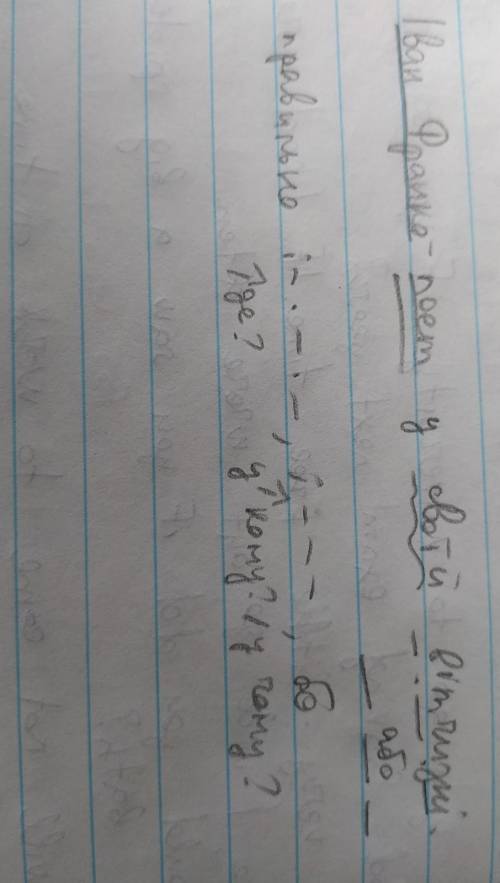 Іван Франко - поет у своїй вітчизні.
або
правильно :-.-.-, й - - -, бо
де? у кому? / у чому?